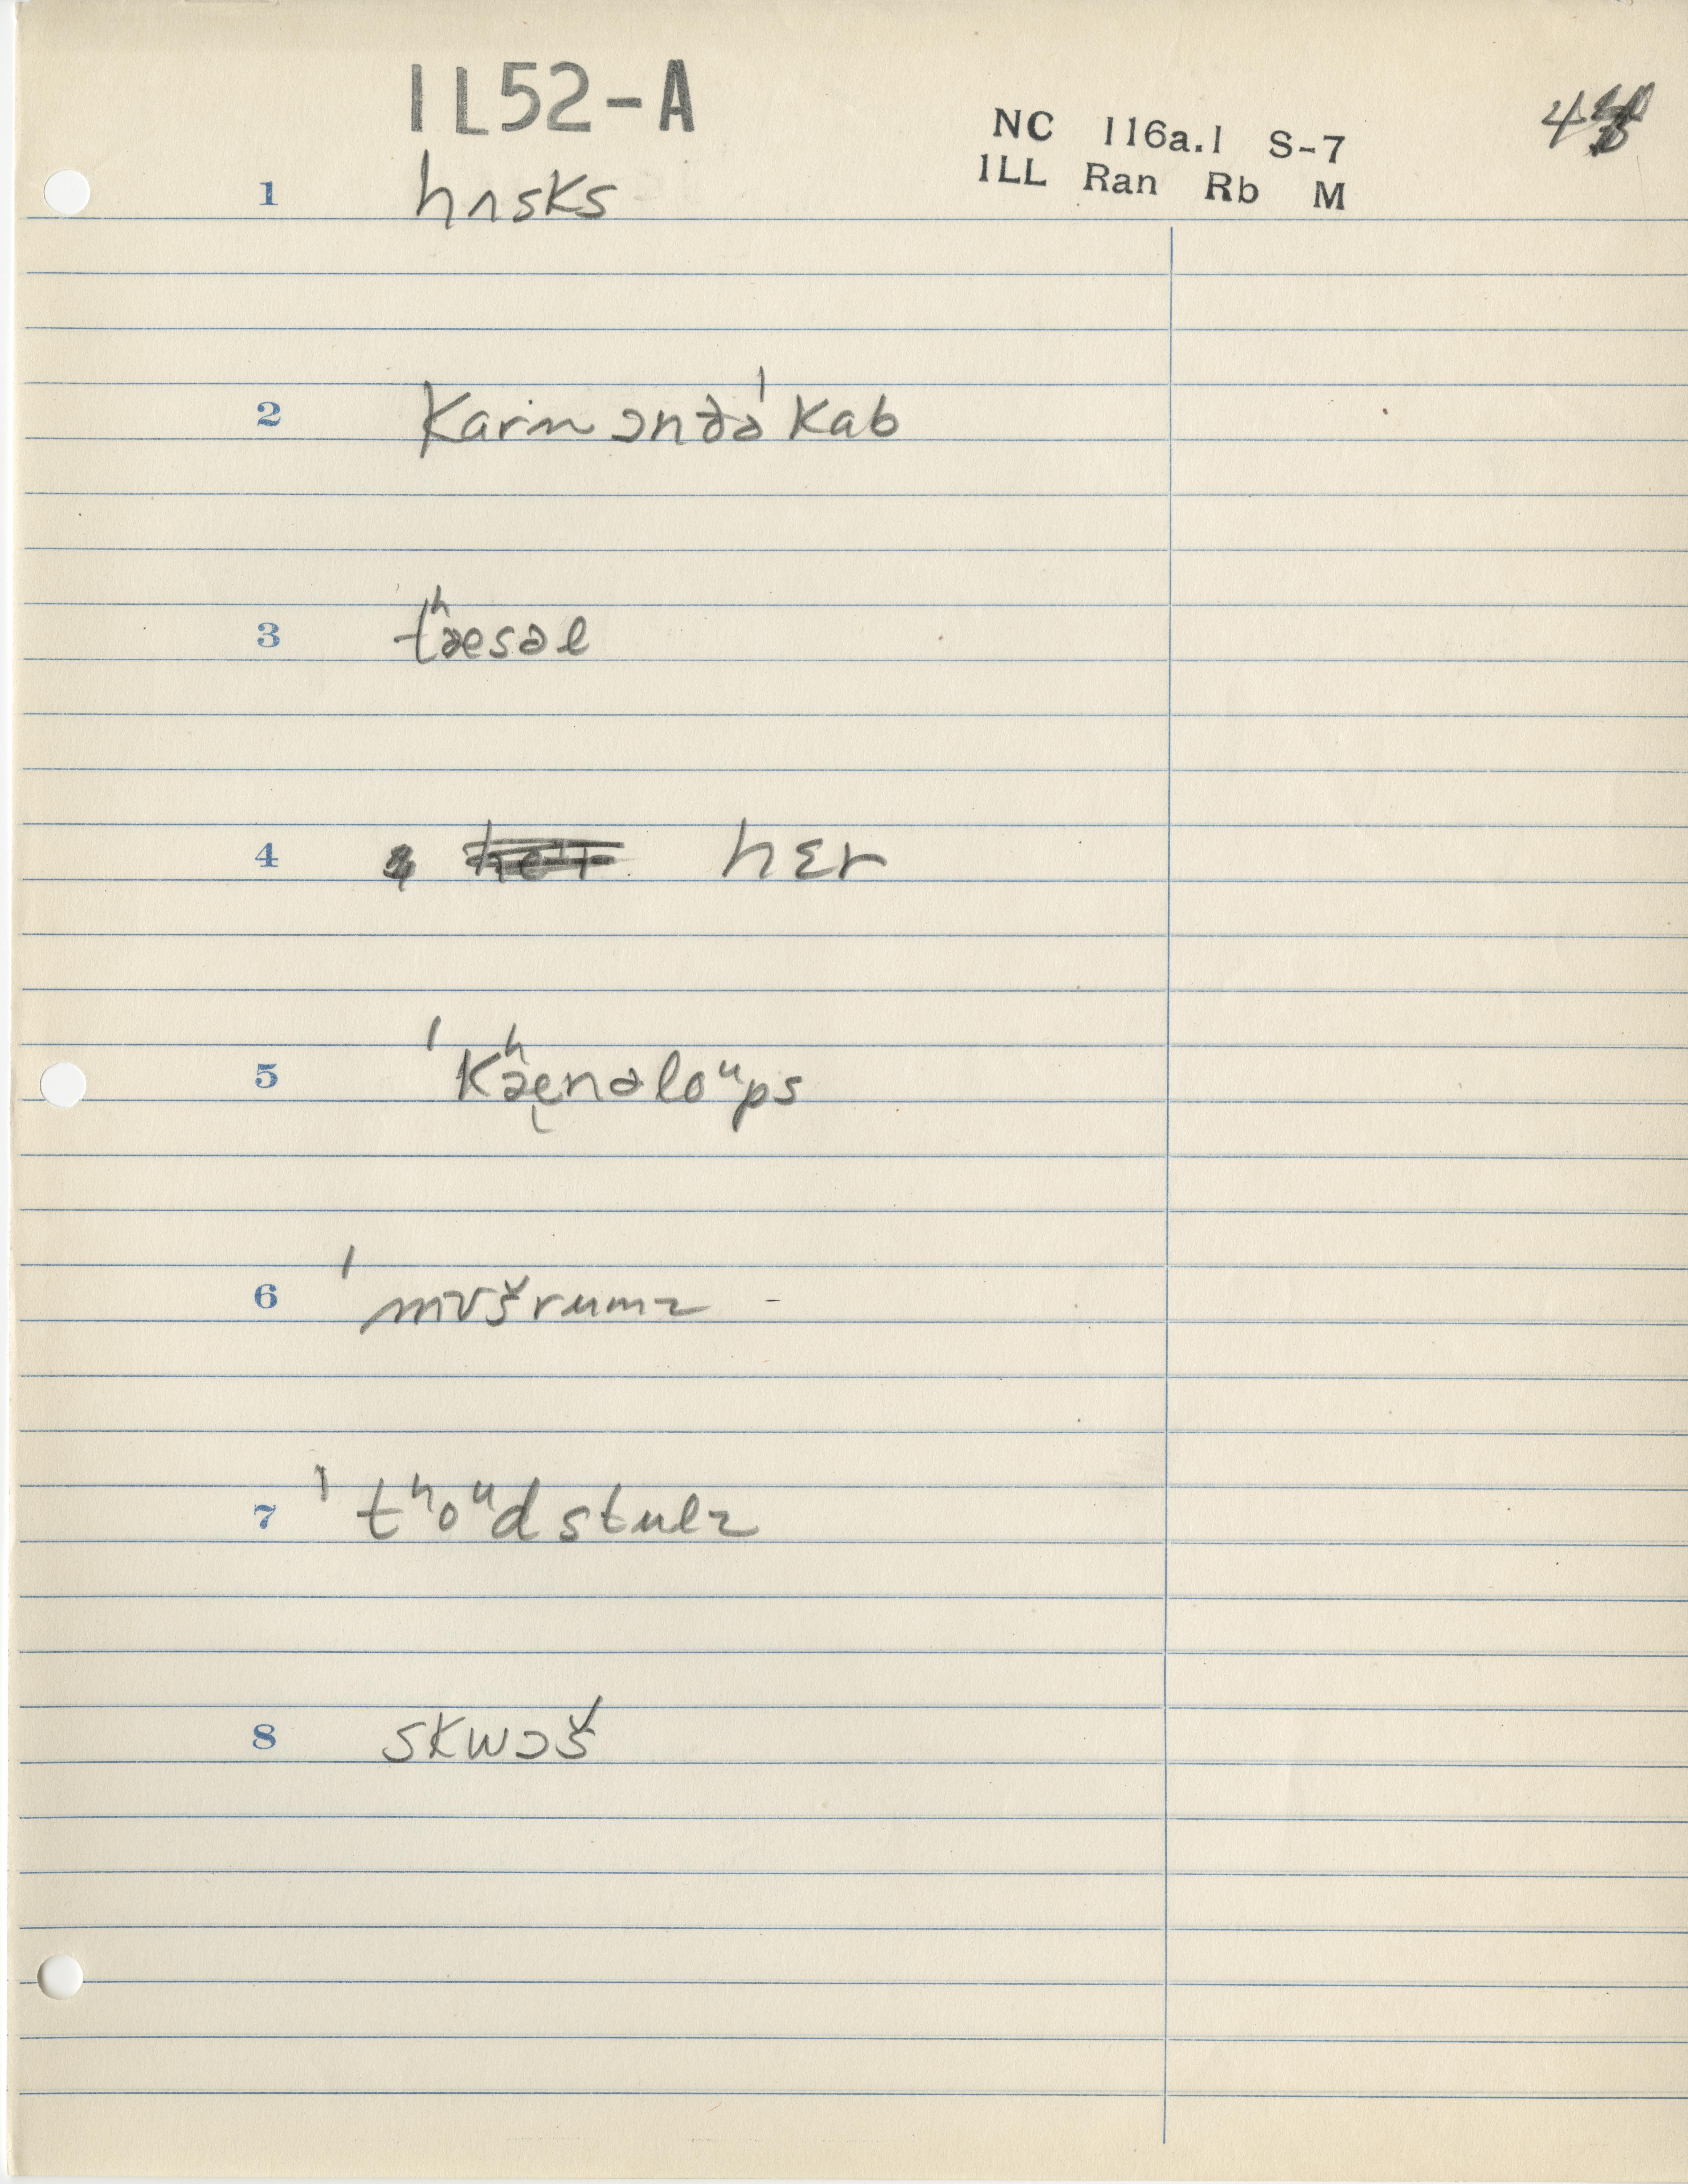 1L52-A
NC 116a.1 S-7
ILL Ran Rb M
1 hʌsks
2 karn ɔnðə ˈkab
3 tʰæsəl
4 hɛr
5 ˈkʰæ̨nəloᵘps
6 ˈmʊšrumz
7 ˈtʰoᵘdstulz
8 skwɔš